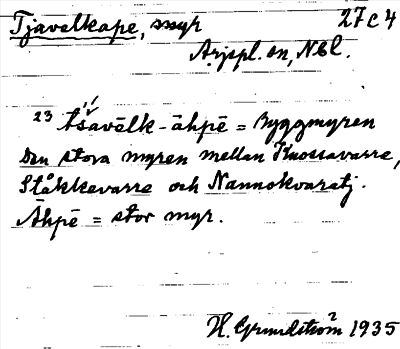 Tjavelkape, myr 27c4
Arjepl. sn, Nbl.
23 tśavēlk-āhpē = Byggmyren
Den stora myren mellan Knossavarre,
Ståkkevarre och Nannokvaratj.
Āhpē = stor myr.
H. Grundström 1935